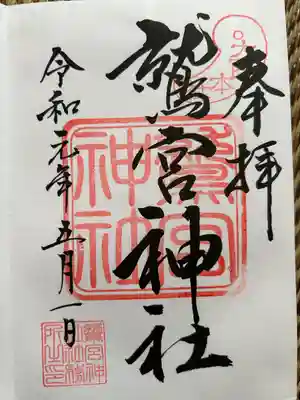 奉拝
鷲宮神社
令和元年五月一日
鷲宮
神社